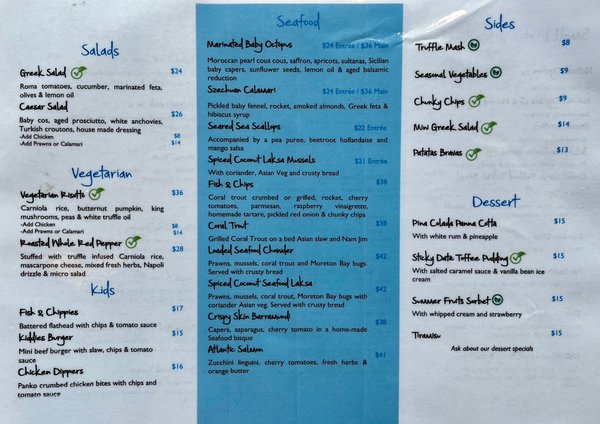 Salads
Greek Salad $24
Roma tomatoes, cucumber, marinated feta,
olives & lemon oil
Caesar Salad $26
Baby cos, aged prosciutto, white anchovies,
Turkish croutons, house made dressing
-Add Chicken $8
-Add Prawns or Calamari $14
Vegetarian
Vegetarian Risotto $36
Carniola rice, butternut pumpkin, king
mushrooms, peas & white truffle oil
-Add Chicken $8
-Add Prawns or Calamari $14
Roasted Whole Red Pepper $28
Stuffed with truffle infused Carniola rice,
mascarpone cheese, mixed fresh herbs, Napoli
drizzle & micro salad
Kids
Fish & Chippies $17
Battered flathead with chips & tomato sauce
Kiddies Burger $15
Mini beef burger with slaw, chips & tomato
sauce
Chicken Dippers $16
Panko crumbed chicken bites with chips and
tomato sauce
Seafood
Marinated Baby Octopus $24 Entrée / $36 Main
Moroccan pearl cous cous, saffron, apricots, sultanas, Sicilian
baby capers, sunflower seeds, lemon oil & aged balsamic
reduction
Szechuan Calamari $24 Entrée / $36 Main
Pickled baby fennel, rocket, smoked almonds, Greek feta &
hibiscus syrup
Seared Sea Scallops $22 Entrée
Accompanied by a pea puree, beetroot hollandaise and
mango salsa
Spiced Coconut Laksa Mussels $21 Entrée
With coriander, Asian Veg and crusty bread
Fish & Chips $38
Coral trout crumbed or grilled, rocket, cherry
tomatoes, parmesan, raspberry vinaigrette,
homemade tartare, pickled red onion & chunky chips
Coral Trout $38
Grilled Coral Trout on a bed Asian slaw and Nam Jim
Loaded Seafood Chowder $42
Prawns, mussels, coral trout and Moreton Bay bugs.
Served with crusty bread
Spiced Coconut Seafood Laksa $42
Prawns, mussels, coral trout, Moreton Bay bugs with
coriander Asian veg. Served with crusty bread
Crispy Skin Barramundi $38
Capers, asparagus, cherry tomato in a home-made
Seafood bisque
Atlantic Salmon $41
Zucchini linguini, cherry tomatoes, fresh herbs &
orange butter
Sides
Truffle Mash $8
Seasonal Vegetables $9
Chunky Chips $9
Mini Greek Salad $14
Patatas Bravas $13
Dessert
Pina Colada Panna Cotta $15
With white rum & pineapple
Sticky Date Toffee Pudding $15
With salted caramel sauce & vanilla bean ice
cream
Summer Fruits Sorbet $15
With whipped cream and strawberry
Tiramisu $15
Ask about our dessert specials